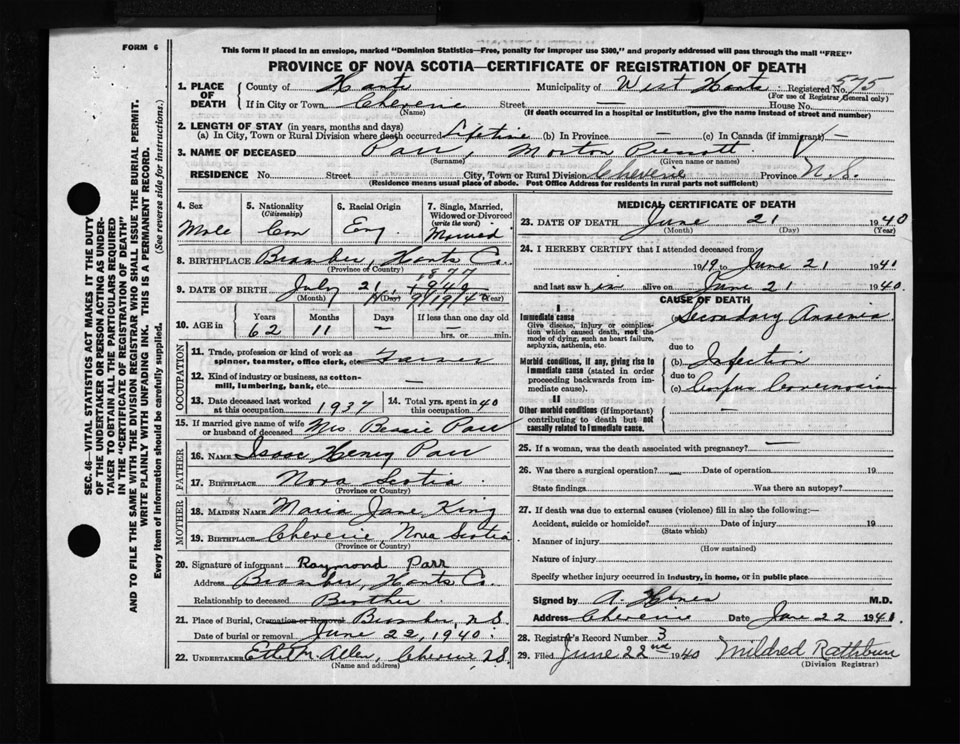 FORM 6
This form if placed in an envelope, marked "Dominion Statistics—Free, penalty for improper use $300," and properly addressed will pass through the mail "FREE"
PROVINCE OF NOVA SCOTIA—CERTIFICATE OF REGISTRATION OF DEATH
SEC. 46—VITAL STATISTICS ACT MAKES IT THE DUTY
OF THE UNDERTAKER OR PERSON ACTING AS UNDER-
TAKER TO OBTAIN ALL THE PARTICULARS REQUIRED
IN THE "CERTIFICATE OF REGISTRATION OF DEATH"
AND TO FILE THE SAME WITH THE DIVISION REGISTRAR WHO SHALL ISSUE THE BURIAL PERMIT.
WRITE PLAINLY WITH UNFADING INK. THIS IS A PERMANENT RECORD.
Every item of information should be carefully supplied. (See reverse side for instructions.)
1. PLACE OF DEATH
County of Hants Municipality of West Hants Registered No. 575
(For use of Registrar General only)
If in City or Town Cheverie Street — House No.
(Name) (If death occurred in a hospital or institution, give the name instead of street and number)
2. LENGTH OF STAY (in years, months and days)
(a) In City, Town or Rural Division where death occurred Lifetime (b) In Province — (c) In Canada (if immigrant) —
3. NAME OF DECEASED Parr, Morton
(Surname) (Given name or names)
RESIDENCE No. Street City, Town or Rural Division Cheverie Province N.S.
(Residence means usual place of abode. Post Office Address for residents in rural parts not sufficient)
4. Sex Male
5. Nationality (Citizenship) Can
6. Racial Origin Eng.
7. Single, Married, Widowed or Divorced (write the word) Married
8. BIRTHPLACE Bramber, Hants Co.
(Province of Country)
1877
9. DATE OF BIRTH July 21,
(Month) (Day) (Year)
10. AGE in Years 62 Months 11 Days — If less than one day old — hrs. or min.
OCCUPATION
11. Trade, profession or kind of work as spinner, teamster, office clerk, etc. Farmer
12. Kind of industry or business, as cotton-mill, lumbering, bank, etc. —
13. Date deceased last worked at this occupation 1937 14. Total yrs. spent in this occupation 40
15. If married give name of wife or husband of deceased Mrs. Bessie Parr
FATHER
16. NAME Isaac Henry Parr
17. BIRTHPLACE Nova Scotia
(Province or Country)
MOTHER
18. MAIDEN NAME Maria Jane King
19. BIRTHPLACE Cheverie, Nova Scotia
(Province or Country)
20. Signature of informant Raymond Parr
Address Bramber, Hants Co.
Relationship to deceased Brother
21. Place of Burial, Cremation or Removal Bramber, N.S.
Date of burial or removal June 22, 1940.
22. UNDERTAKER Allen, Cheverie N.S
(Name and address)
MEDICAL CERTIFICATE OF DEATH
23. DATE OF DEATH June 21 1940
(Month) (Day) (Year)
24. I HEREBY CERTIFY that I attended deceased from
1919 to June 21 1940
and last saw him alive on June 21 1940.
CAUSE OF DEATH
I
Immediate cause
Give disease, injury or complication which caused death, not the mode of dying, such as heart failure, asphyxia, asthenia, etc.
(a) Secondary Anaemia
due to
Morbid conditions, if any, giving rise to immediate cause (stated in order proceeding backwards from immediate cause).
(b) Infection
due to
(c)
II
Other morbid conditions (if important) contributing to death but not causally related to immediate cause. —
25. If a woman, was the death associated with pregnancy? —
26. Was there a surgical operation? — Date of operation 19
State findings Was there an autopsy?
27. If death was due to external causes (violence) fill in also the following:—
Accident, suicide or homicide? Date of injury 19
(State which)
Manner of injury
(How sustained)
Nature of injury
Specify whether injury occurred in industry, in home, or in public place
Signed by A. M.D.
Address Cheverie Date June 22 1940.
28. Registrar's Record Number 3
29. Filed June 22nd 1940 Mildred Rathbun
(Division Registrar)